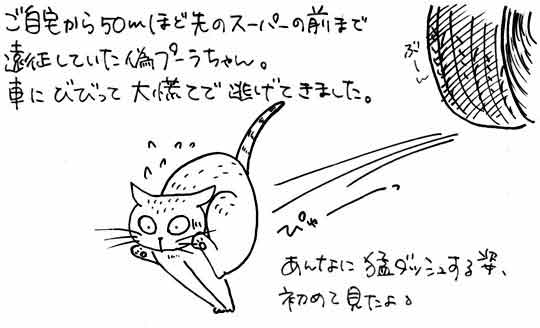 ご自宅から50mほど先のスーパーの前まで
遠征していた偽プーラちゃん。
車にびびって大慌てで逃げてきました。
ぶーん
ぴゃーっ
あんなに猛ダッシュする姿、
初めて見たよ。